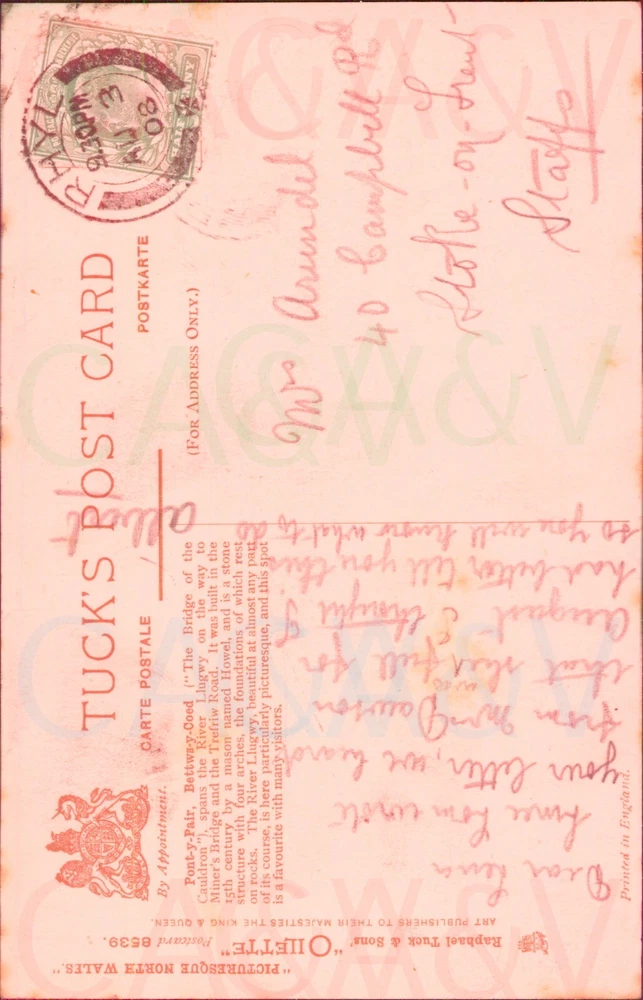 TUCK'S POST CARD
CARTE POSTALE
POSTKARTE
By Appointment.
(FOR ADDRESS ONLY.)
RHYL
9.30PM
3
08
Mrs Arundel
40 Campbell Rd
Stoke-on-Trent
Staffs
Pont-y-Pair, Bettws-y-Coed ("The Bridge of the
Cauldron"), spans the River Llugwy on the way to
Miner's Bridge and the Trefriw Road. It was built in the
15th century by a mason named Howel, and is a stone
structure with four arches, the foundations of which rest
on rocks. The River Llugwy, beautiful at almost any part
of its course, is here particularly picturesque, and this spot
is a favourite with many visitors.
Dear Lena
Since Tom wrote
your letter, we heard
from Mrs Dawson
that she was full for
August & thought I
had better tell you this
so you will know what to do
Printed in England.
"PICTURESQUE NORTH WALES."
Raphael Tuck & Sons' "OILETTE" Postcard 8539.
ART PUBLISHERS TO THEIR MAJESTIES THE KING & QUEEN.
CA&V
CA&V
CA&V
CA&V
CA&V
CA&V
CA&V
CA&V